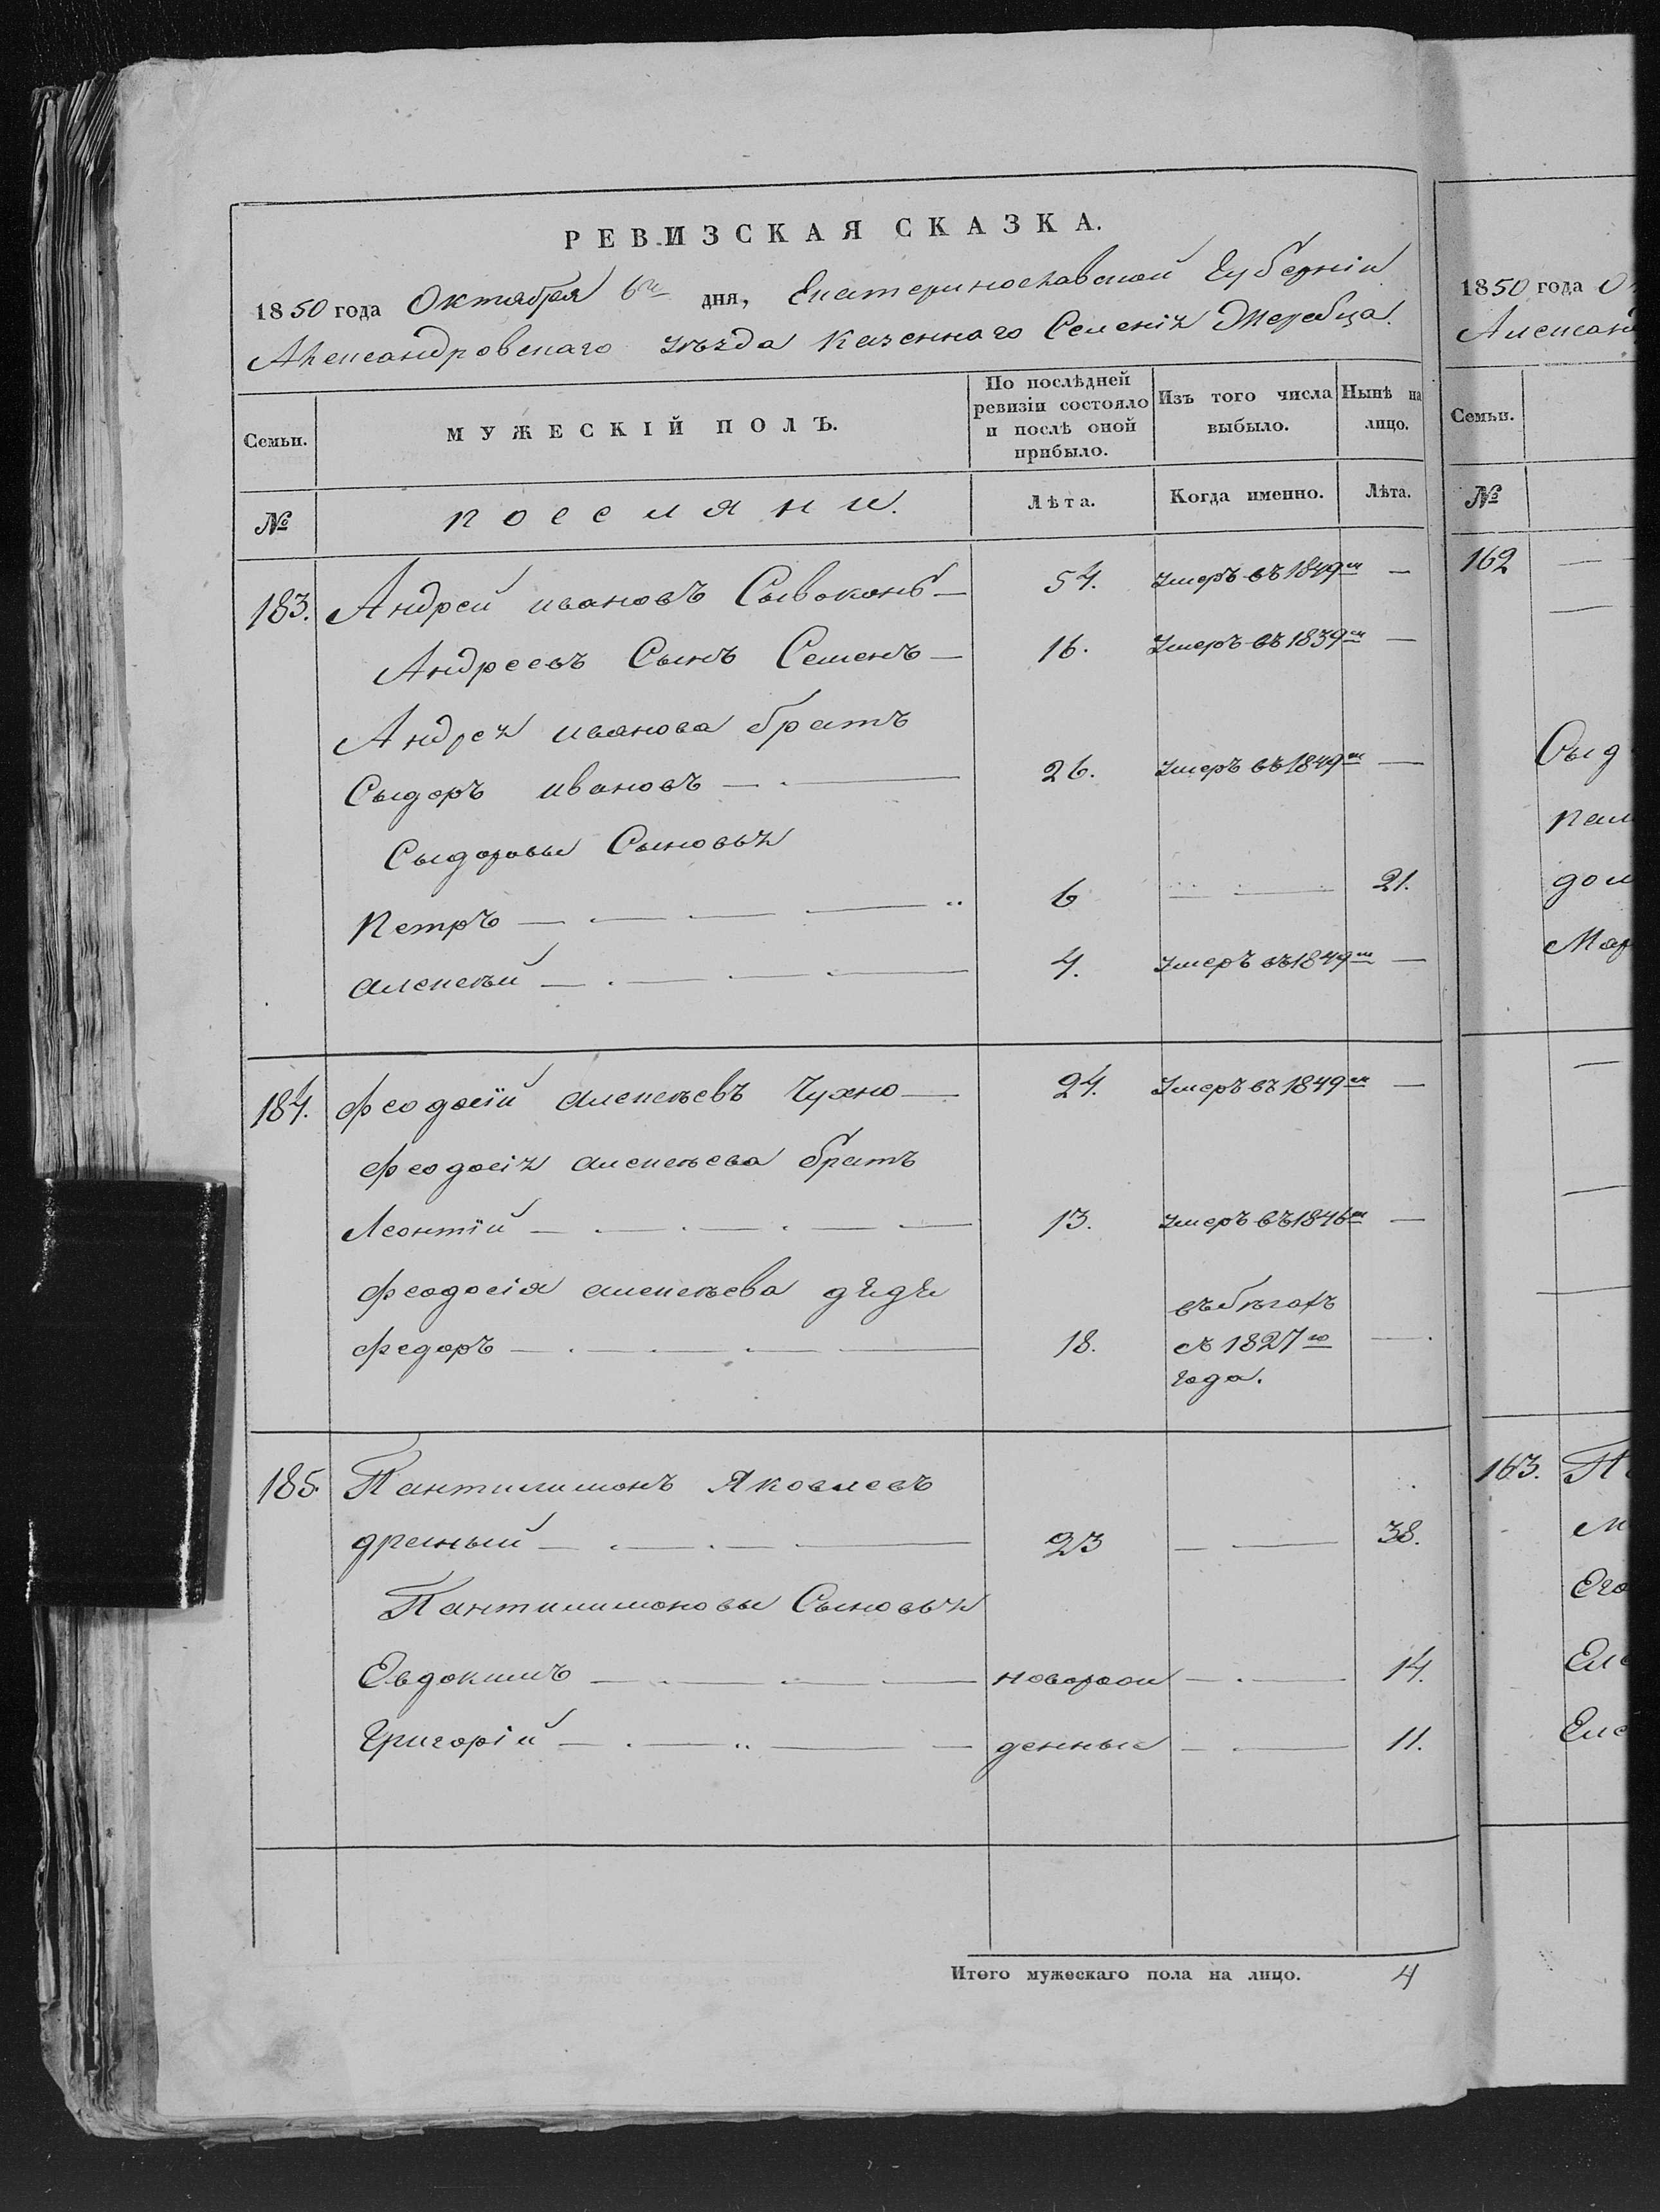 РЕВИЗСКАЯ СКАЗКА.
1850 года Октября 6го дня, Екатеринославской Губерніи
Александровскаго уѣзда казеннаго Селенія Жеребца.
Семьи.
МУЖЕСКІЙ ПОЛЪ.
По послѣдней ревизіи состояло и послѣ оной прибыло.
Изъ того числа выбыло.
Нынѣ на лицо.
№
поселяни.
Лѣта.
Когда именно.
Лѣта.
183. Андрей ивановъ Сывоконь — 54. умеръ въ 1849м —
Андреевъ Сынъ Семенъ — 16. умеръ въ 1839м —
Андрея иванова братъ
Сыдоръ ивановъ — 26. умеръ въ 1849м —
Сыдоровы Сыновья
Петръ — 6 — 21.
алексѣй — 4. умеръ въ 1849м —
184. феодосій алексѣевъ Чухно — 24. умеръ въ 1849м —
феодосія алексѣева братъ
Леонтій — 13. умеръ въ 1846м —
феодосія алексѣева дядя
федоръ — 18. въ бѣгахъ
съ 1827го —
года.
185. Пантилимонъ Яковлевъ
— 23 — 38.
Пантилимоновы Сыновья
Евдокимъ — новорож — 14.
Григорій — денные — 11.
Итого мужескаго пола на лицо. 4
1850 года О
Александ
Семьи.
№
162
Сыд
дом
Мар
163.
Его